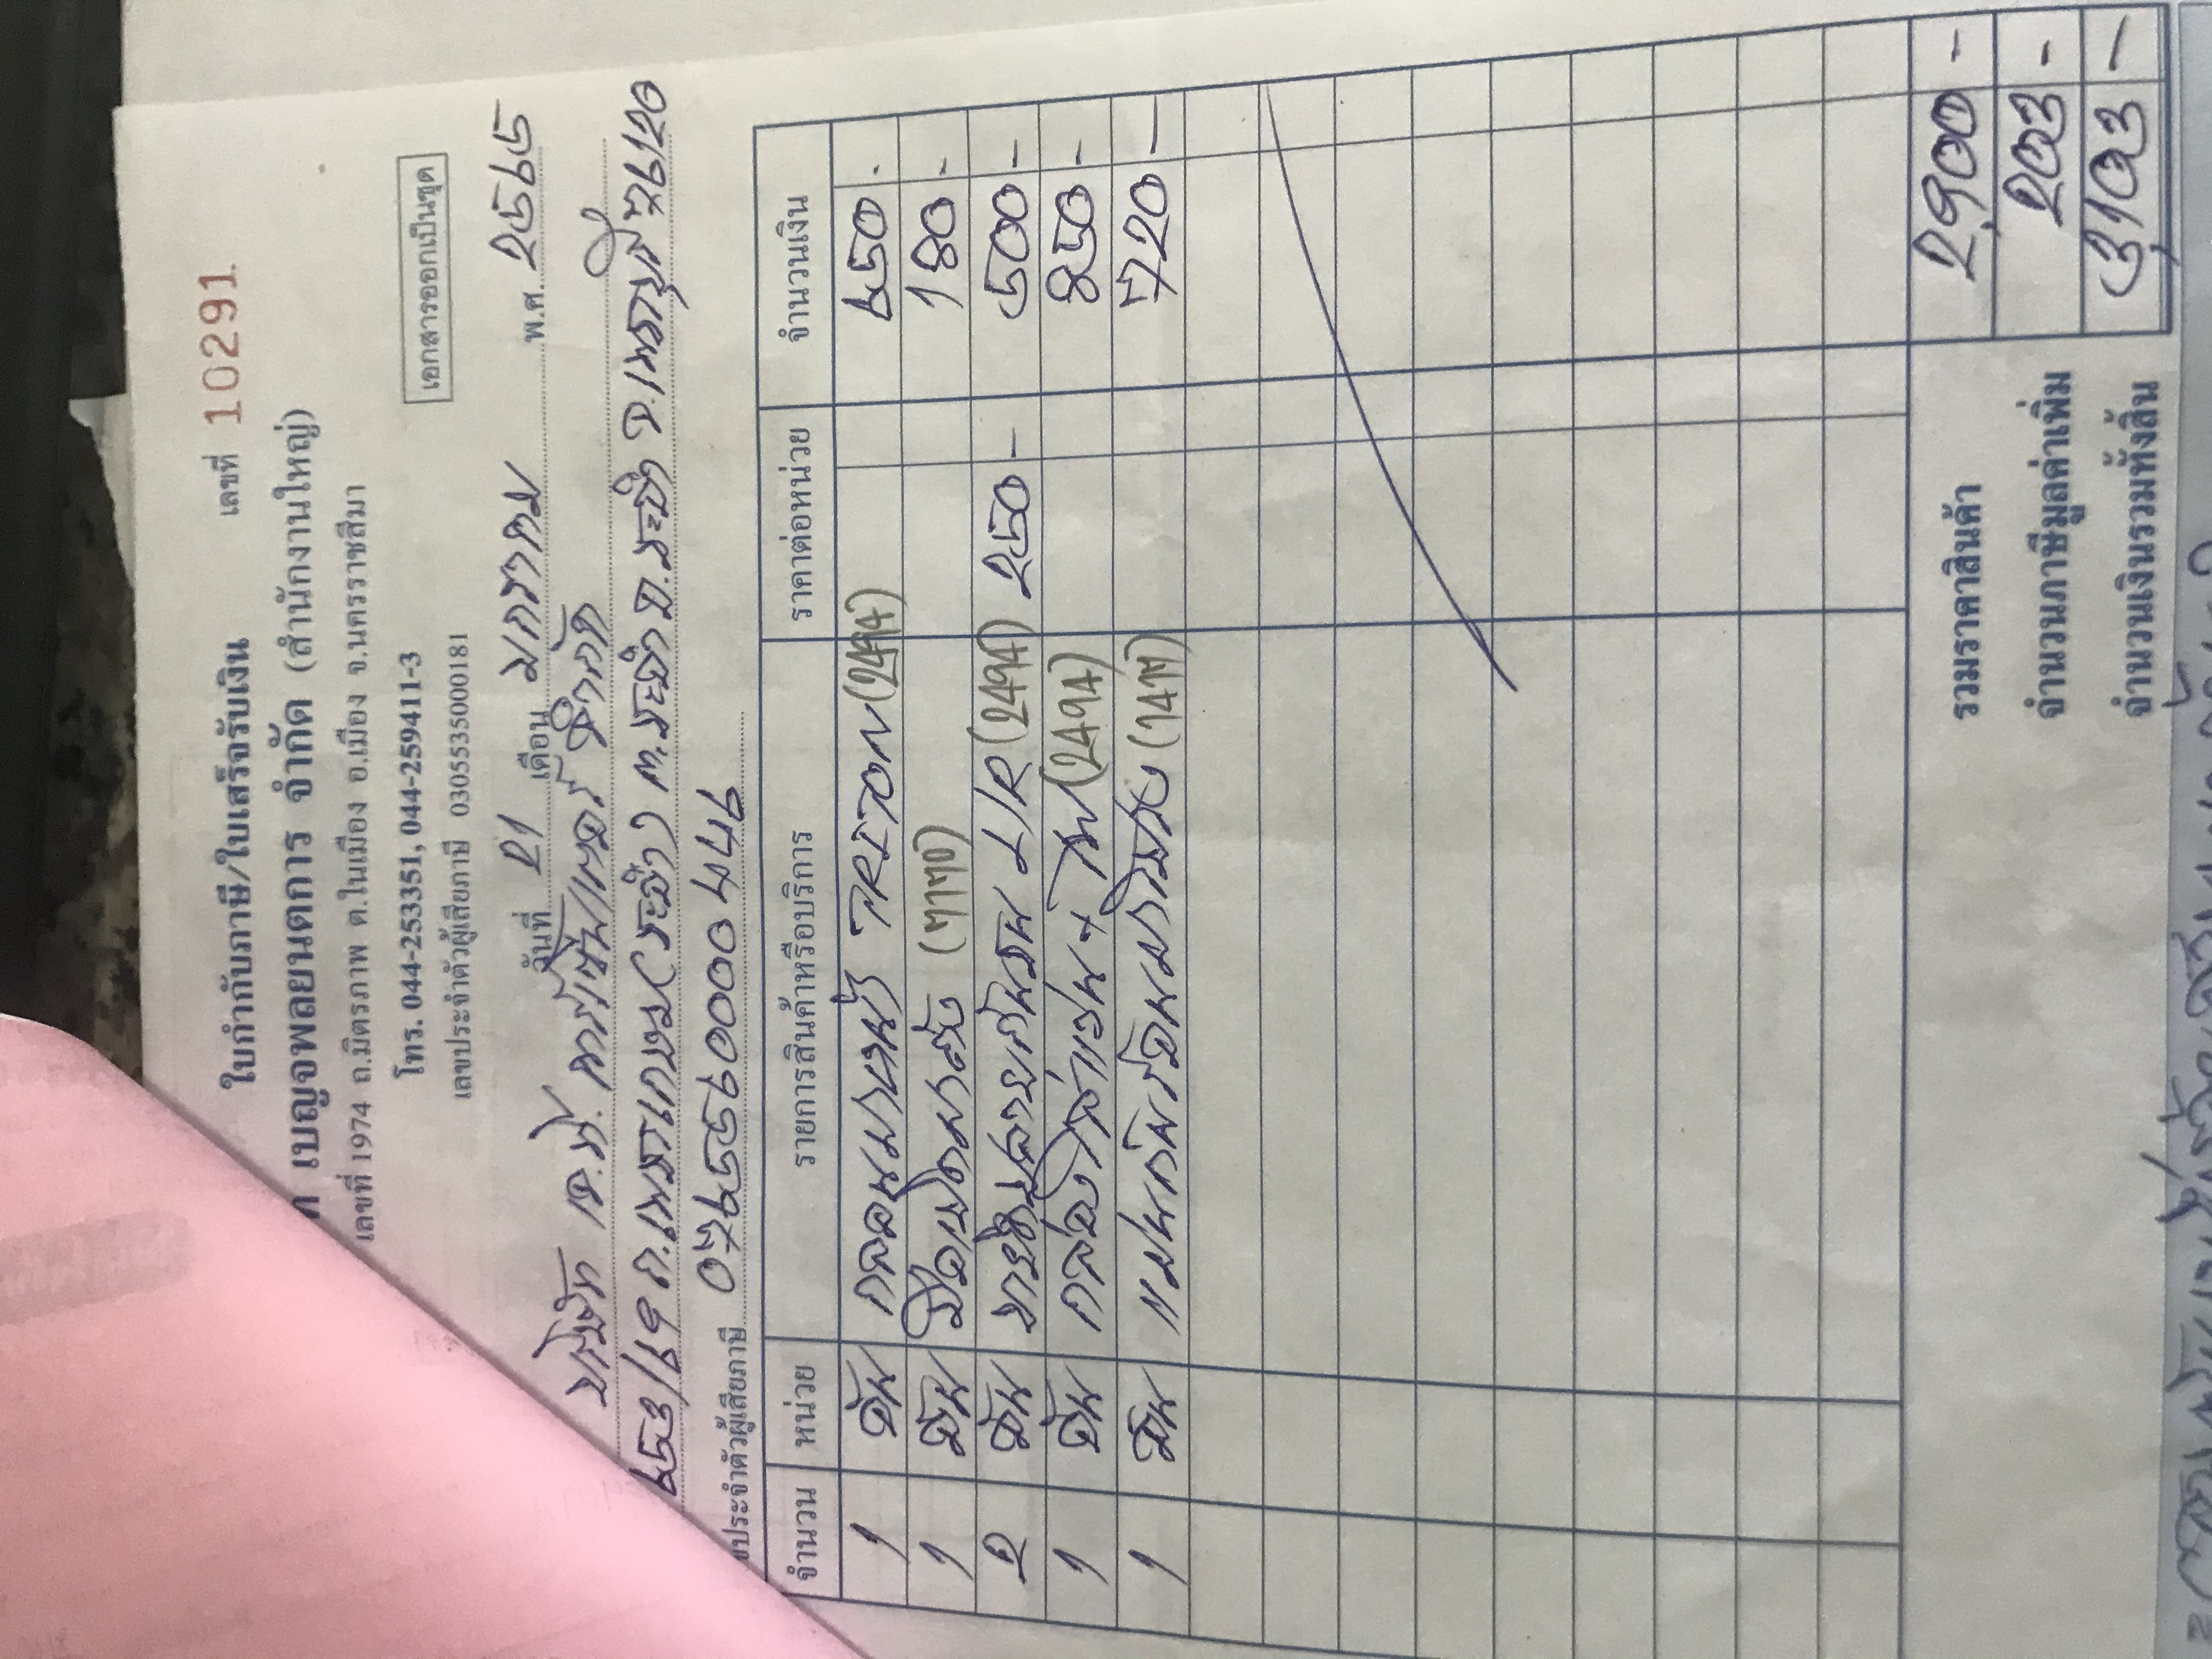 ใบกำกับภาษี/ใบเสร็จรับเงิน เลขที่ 10291
เบญจพลยนตการ จำกัด (สำนักงานใหญ่)
เลขที่ 1974 ถ.มิตรภาพ ต.ในเมือง อ.เมือง จ.นครราชสีมา
โทร. 044-253351, 044-259411-3
เอกสารออกเป็นชุด
เลขประจำตัวผู้เสียภาษี 0305535000181
วันที่ 21 เดือน มกราคม พ.ศ. 2565
บริษัท เค.ที. คาร์เซ็นเตอร์ จำกัด
653/19 ถ.เพชรเกษม(ชะอำ) ต.ชะอำ อ.ชะอำ จ.เพชรบุรี 76120
ประจำตัวผู้เสียภาษี 0765560000446
จำนวน หน่วย รายการสินค้าหรือบริการ ราคาต่อหน่วย จำนวนเงิน
1 อัน TRITON (2494) 650 -
1 อัน (7170) 180 -
2 อัน ขายึดปลายกันชน L/R (2494) 250 - 500 -
1 อัน (2494) 850 -
1 อัน 720 -
รวมราคาสินค้า 2,900 -
จำนวนภาษีมูลค่าเพิ่ม 203 -
จำนวนเงินรวมทั้งสิ้น 3,103 -